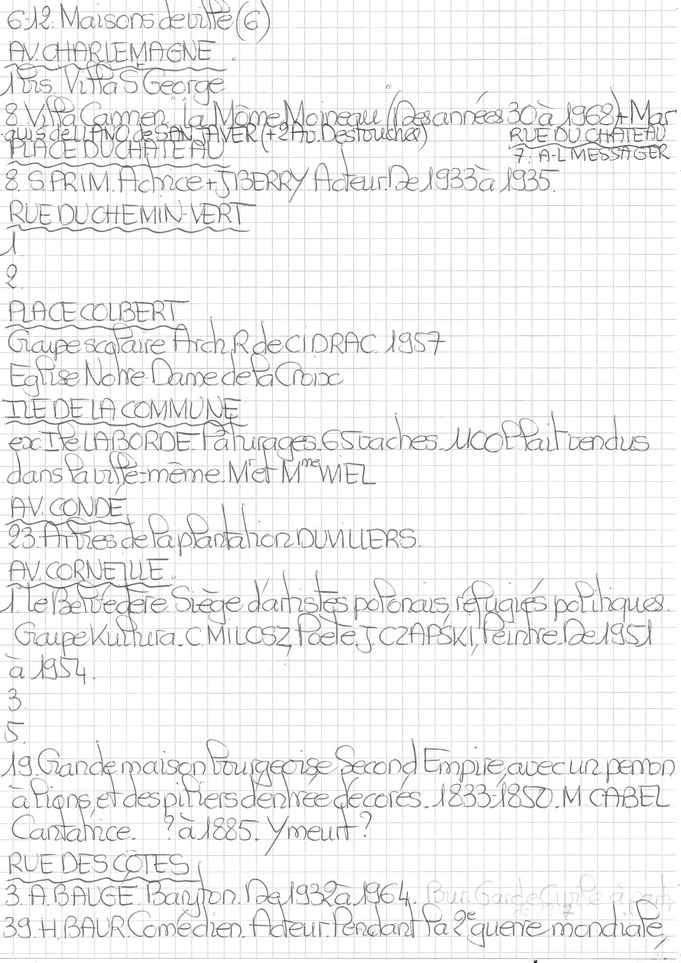 6-12. Maisons de ville (6)
AV. CHARLEMAGNE
1 bis. Villa S George
8. Villa Carmen "la Môme Moineau" (Des années 30 à 1968) + Mar
quis de LLANO de SAN JAVER (+ 2 Av. Destouches)
RUE DU CHATEAU
7: A-L MESSAGER
PLACE DU CHATEAU
8. S. PRIM. Actrice + J BERRY. Acteur. De 1933 à 1935.
RUE DU CHEMIN-VERT
1
2.
PLACE COLBERT
Groupe scolaire Arch. R de CIDRAC. 1957
Eglise Notre-Dame de la Croix
ILE DE LA COMMUNE
ex Ile LABORDE. Pâturages. 65 vaches. 1100 l lait vendus
dans la ville-même. Mr et Mme WIEL
AV. CONDÉ
23. Arbres de la plantation DUVILLERS.
AV. CORNEILLE
1. Le Belvédère. Siège d'artistes polonais, réfugiés politiques.
Groupe Kultura. C. MILOSZ, Poète, J CZAPSKI, Peintre. De 1951
à 1954.
3.
5.
19. Grande maison bourgeoise Second Empire, avec un perron
à lions, et des piliers d'entrée décorés. 1833-1850. M CABEL
Cantatrice. ? à 1885. Y meurt ?
RUE DES CÔTES
3. A. BAUGE. Baryton. De 1932 à 1964.
39. H. BAUR. Comédien. Acteur. Pendant la 2e guerre mondiale,